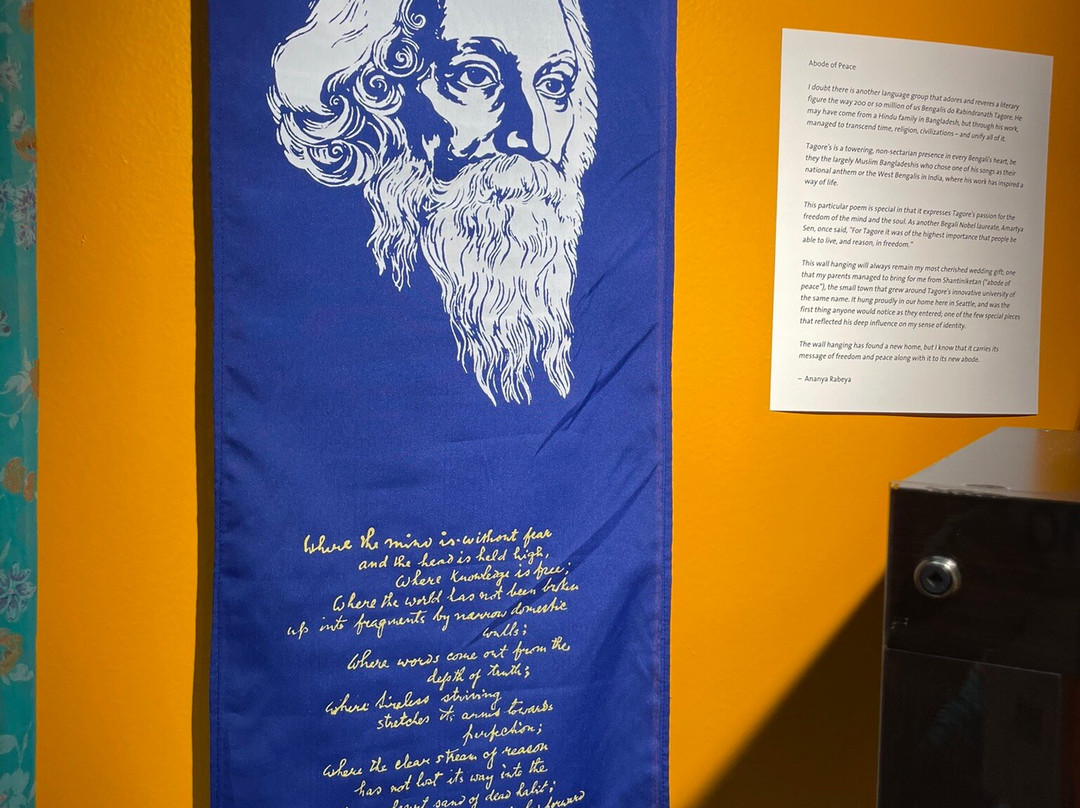 Where the mind is without fear
and the head is held high,
Where knowledge is free;
Where the world has not been broken
up into fragments by narrow domestic
walls;
Where words come out from the
depth of truth;
Where tireless striving
stretches its arms towards
perfection;
Where the clear stream of reason
has not lost its way into the
sand of dead habit;
forward
Abode of Peace
I doubt there is another language group that adores and reveres a literary
figure the way 200 or so million of us Bengalis do Rabindranath Tagore. He
may have come from a Hindu family in Bangladesh, but through his work,
managed to transcend time, religion, civilizations – and unify all of it.
Tagore's is a towering, non-sectarian presence in every Bengali's heart, be
they the largely Muslim Bangladeshis who chose one of his songs as their
national anthem or the West Bengalis in India, where his work has inspired a
way of life.
This particular poem is special in that it expresses Tagore's passion for the
freedom of the mind and the soul. As another Begali Nobel laureate, Amartya
Sen, once said, "For Tagore it was of the highest importance that people be
able to live, and reason, in freedom."
This wall hanging will always remain my most cherished wedding gift; one
that my parents managed to bring for me from Shantiniketan ("abode of
peace"), the small town that grew around Tagore's innovative university of
the same name. It hung proudly in our home here in Seattle, and was the
first thing anyone would notice as they entered; one of the few special pieces
that reflected his deep influence on my sense of identity.
The wall hanging has found a new home, but I know that it carries its
message of freedom and peace along with it to its new abode.
– Ananya Rabeya